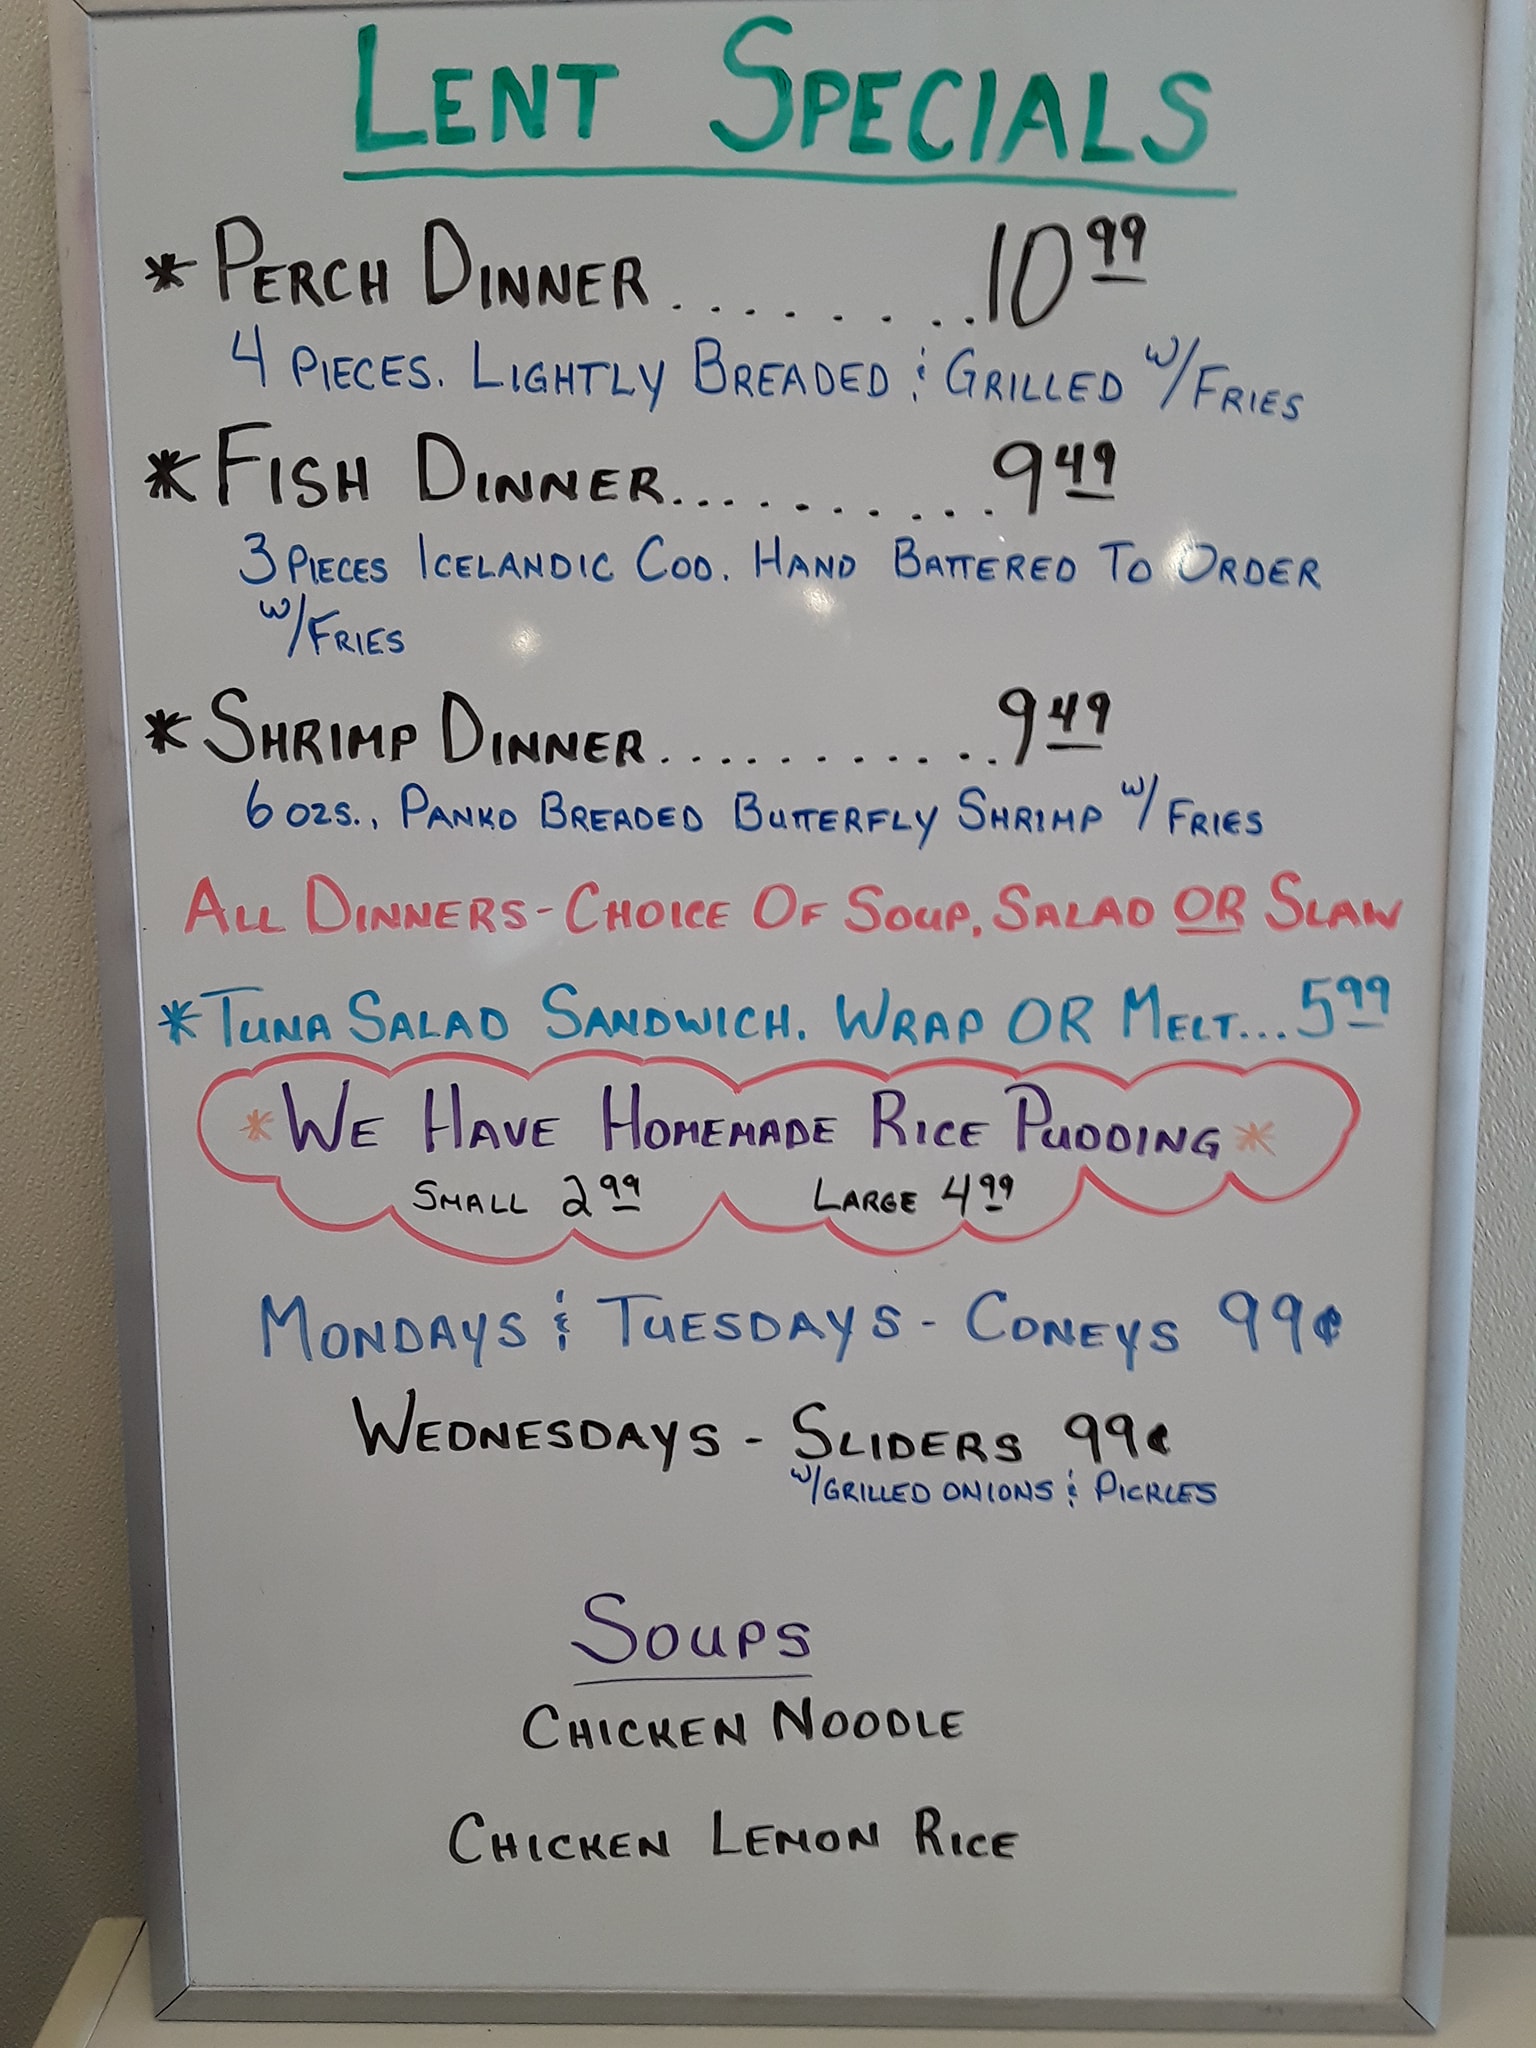 LENT SPECIALS
* PERCH DINNER........10 99
4 PIECES. LIGHTLY BREADED & GRILLED W/FRIES
* FISH DINNER..........9 49
3 PIECES ICELANDIC COD. HAND BATTERED TO ORDER
W/FRIES
* SHRIMP DINNER...........9 49
6 OZS., PANKO BREADED BUTTERFLY SHRIMP W/FRIES
ALL DINNERS - CHOICE OF SOUP, SALAD OR SLAW
* TUNA SALAD SANDWICH. WRAP OR MELT...5 99
* WE HAVE HOMEMADE RICE PUDDING *
SMALL 2 99 LARGE 4 99
MONDAYS & TUESDAYS - CONEYS 99¢
WEDNESDAYS - SLIDERS 99¢
W/GRILLED ONIONS & PICKLES
SOUPS
CHICKEN NOODLE
CHICKEN LEMON RICE